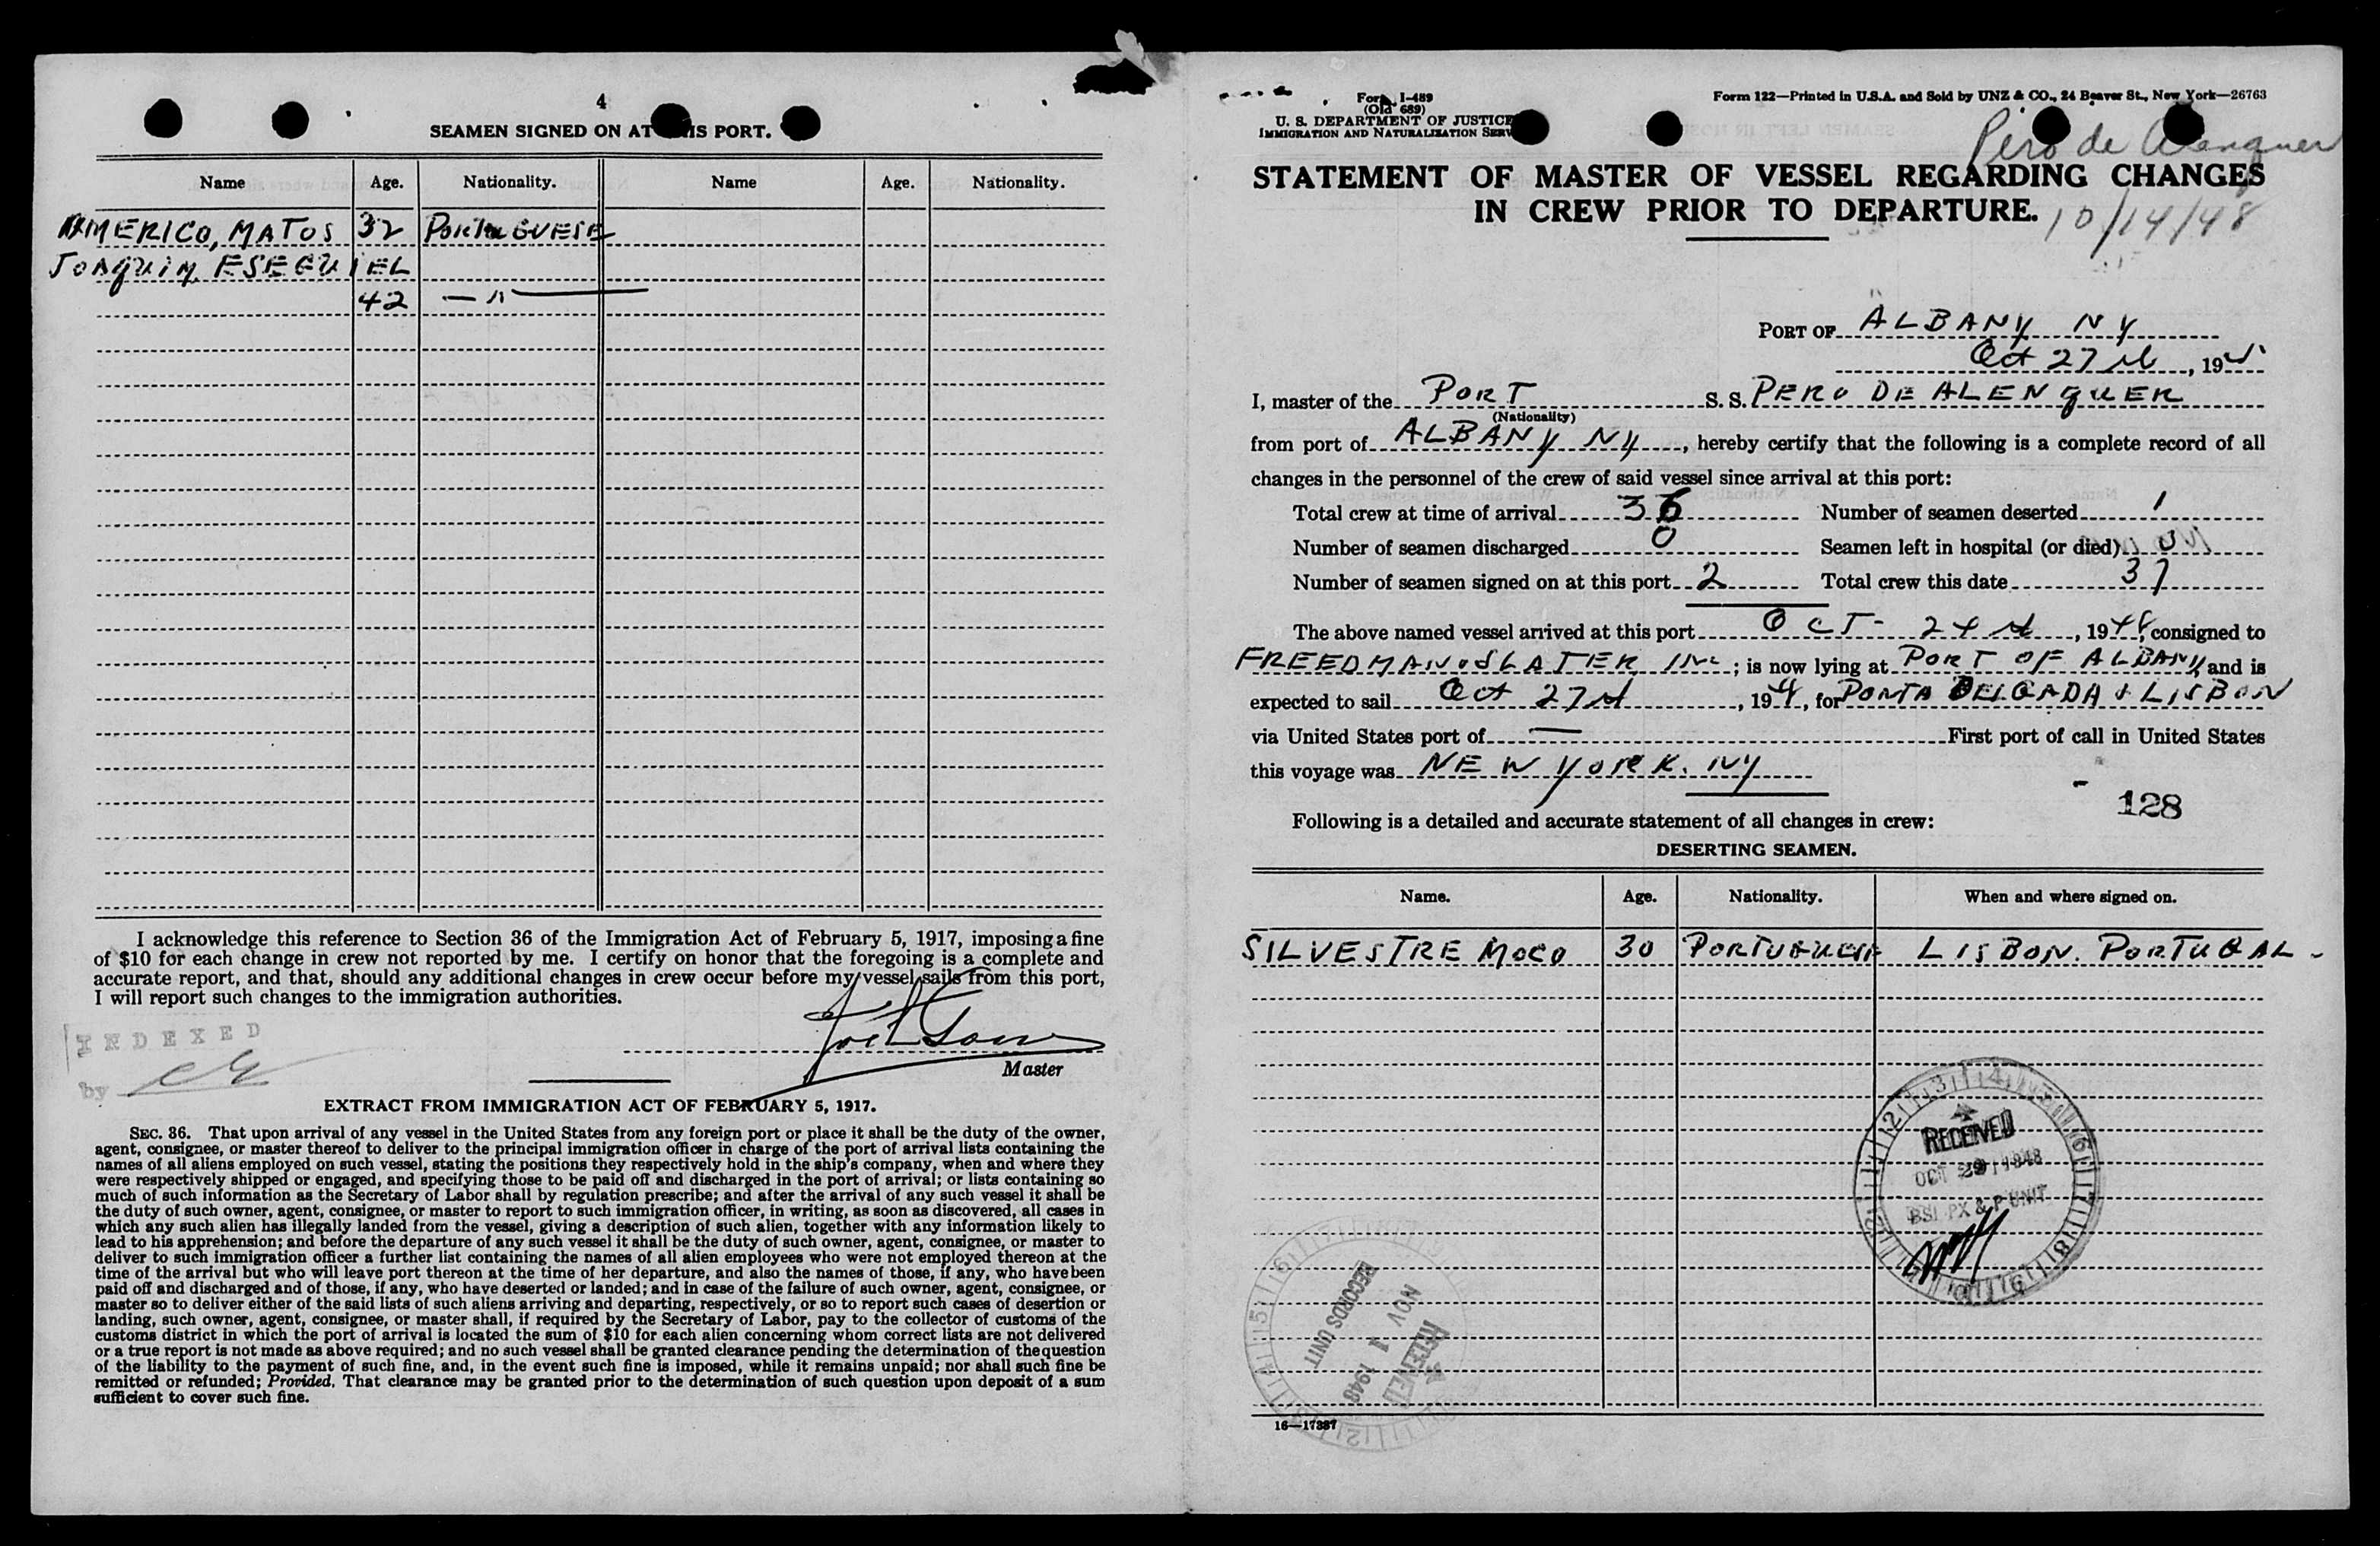 4
SEAMEN SIGNED ON AT THIS PORT.
Name Age. Nationality. Name Age. Nationality.
AMERICO, MATOS 32 PORTUGUESE
JOAQUIM ESEQUIEL
42 — " —
I acknowledge this reference to Section 36 of the Immigration Act of February 5, 1917, imposing a fine
of $10 for each change in crew not reported by me. I certify on honor that the foregoing is a complete and
accurate report, and that, should any additional changes in crew occur before my vessel sails from this port,
I will report such changes to the immigration authorities.
INDEXED
by
Master
EXTRACT FROM IMMIGRATION ACT OF FEBRUARY 5, 1917.
SEC. 36. That upon arrival of any vessel in the United States from any foreign port or place it shall be the duty of the owner,
agent, consignee, or master thereof to deliver to the principal immigration officer in charge of the port of arrival lists containing the
names of all aliens employed on such vessel, stating the positions they respectively hold in the ship's company, when and where they
were respectively shipped or engaged, and specifying those to be paid off and discharged in the port of arrival; or lists containing so
much of such information as the Secretary of Labor shall by regulation prescribe; and after the arrival of any such vessel it shall be
the duty of such owner, agent, consignee, or master to report to such immigration officer, in writing, as soon as discovered, all cases in
which any such alien has illegally landed from the vessel, giving a description of such alien, together with any information likely to
lead to his apprehension; and before the departure of any such vessel it shall be the duty of such owner, agent, consignee, or master to
deliver to such immigration officer a further list containing the names of all alien employees who were not employed thereon at the
time of the arrival but who will leave port thereon at the time of her departure, and also the names of those, if any, who have been
paid off and discharged and of those, if any, who have deserted or landed; and in case of the failure of such owner, agent, consignee, or
master so to deliver either of the said lists of such aliens arriving and departing, respectively, or so to report such cases of desertion or
landing, such owner, agent, consignee, or master shall, if required by the Secretary of Labor, pay to the collector of customs of the
customs district in which the port of arrival is located the sum of $10 for each alien concerning whom correct lists are not delivered
or a true report is not made as above required; and no such vessel shall be granted clearance pending the determination of the question
of the liability to the payment of such fine, and, in the event such fine is imposed, while it remains unpaid; nor shall such fine be
remitted or refunded; Provided, That clearance may be granted prior to the determination of such question upon deposit of a sum
sufficient to cover such fine.
Form I-489
(Old 689)
U. S. DEPARTMENT OF JUSTICE
IMMIGRATION AND NATURALIZATION SERV
Form 122—Printed in U.S.A. and Sold by UNZ & CO., 24 Beaver St., New York—26763
Pero de Alenquer
STATEMENT OF MASTER OF VESSEL REGARDING CHANGES
IN CREW PRIOR TO DEPARTURE.
10/14/48
PORT OF ALBANY NY
Oct 27th, 194
I, master of the PORT S. S. PERO DE ALENQUER
(Nationality)
from port of ALBANY NY, hereby certify that the following is a complete record of all
changes in the personnel of the crew of said vessel since arrival at this port:
Total crew at time of arrival 36 Number of seamen deserted 1
Number of seamen discharged 0 Seamen left in hospital (or died) 0
Number of seamen signed on at this port 2 Total crew this date 37
The above named vessel arrived at this port OCT- 24th, 1948, consigned to
FREEDMAN & SLATER INC; is now lying at PORT OF ALBANY, and is
expected to sail Oct 27th, 194, for PONTA DELGADA & LISBON
via United States port of — First port of call in United States
this voyage was NEW YORK. NY
128
Following is a detailed and accurate statement of all changes in crew:
DESERTING SEAMEN.
Name. Age. Nationality. When and where signed on.
SILVESTRE MOCO 30 PORTUGUESE LISBON. PORTUGAL -
RECEIVED
OCT 29 1948
BSI PX & P UNIT
RECEIVED
NOV 1 1948
RECORDS UNIT
16—17387